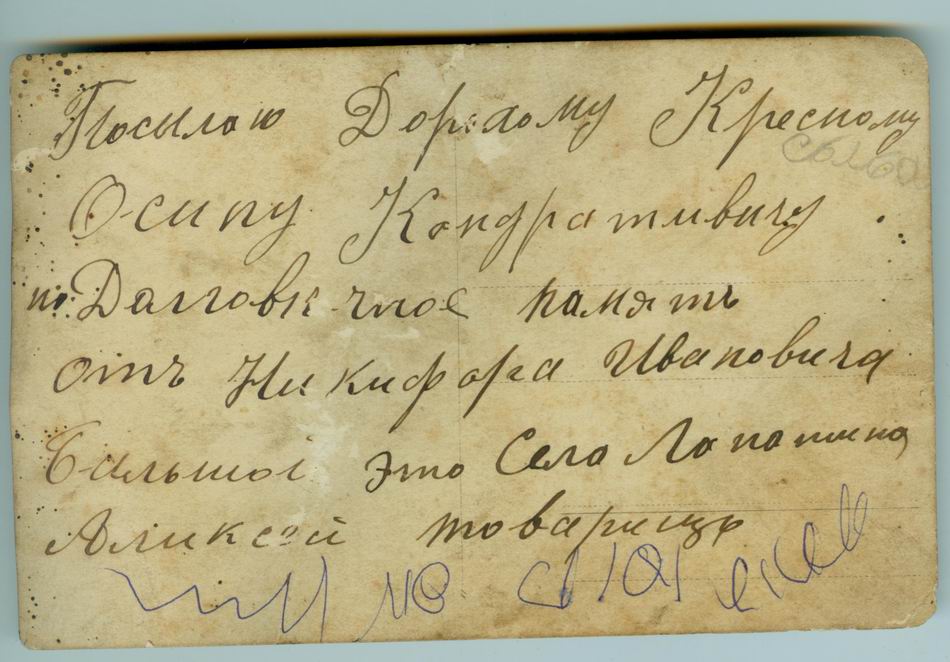 Посылаю Дорогому Кресному
Осипу Кондративичу
на Далговѣчное память
отъ Никифора Ивановича
Балшой это Село Лопатина
Аликсей товарищъ